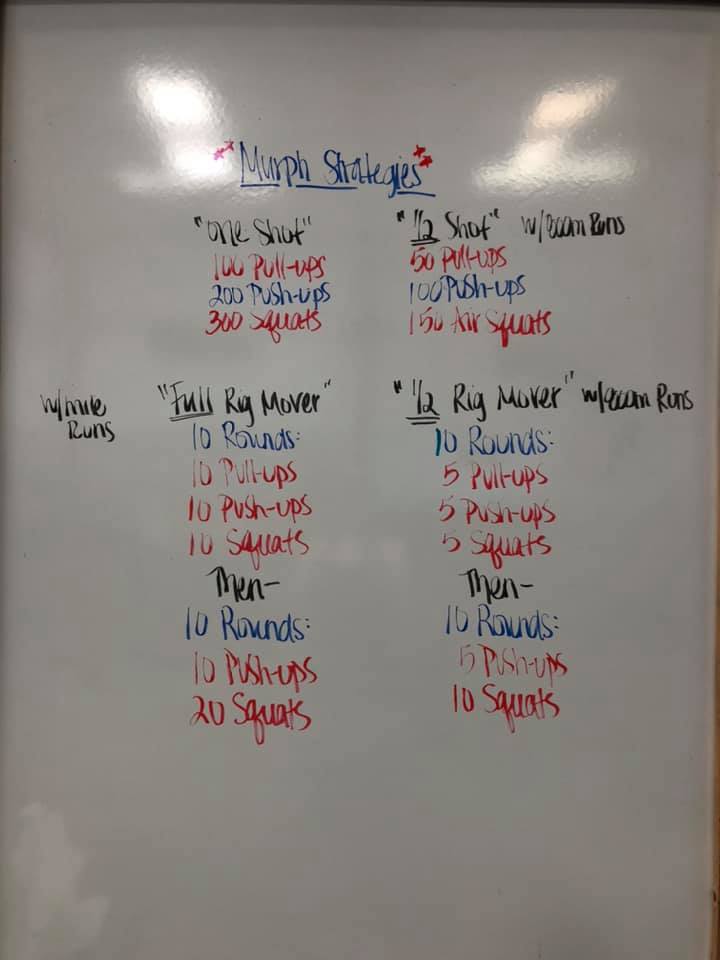 Murph Strategies
"One Shot"
100 Pull-ups
200 Push-ups
300 Squats
"1/2 Shot" w/800m Runs
50 Pull-ups
100 Push-ups
150 Air Squats
w/mile
Runs
"Full Rig Mover"
10 Rounds:
10 Pull-ups
10 Push-ups
10 Squats
Then-
10 Rounds:
10 Push-ups
20 Squats
"1/2 Rig Mover" w/800m Runs
10 Rounds:
5 Pull-ups
5 Push-ups
5 Squats
Then-
10 Rounds:
5 Push-ups
10 Squats